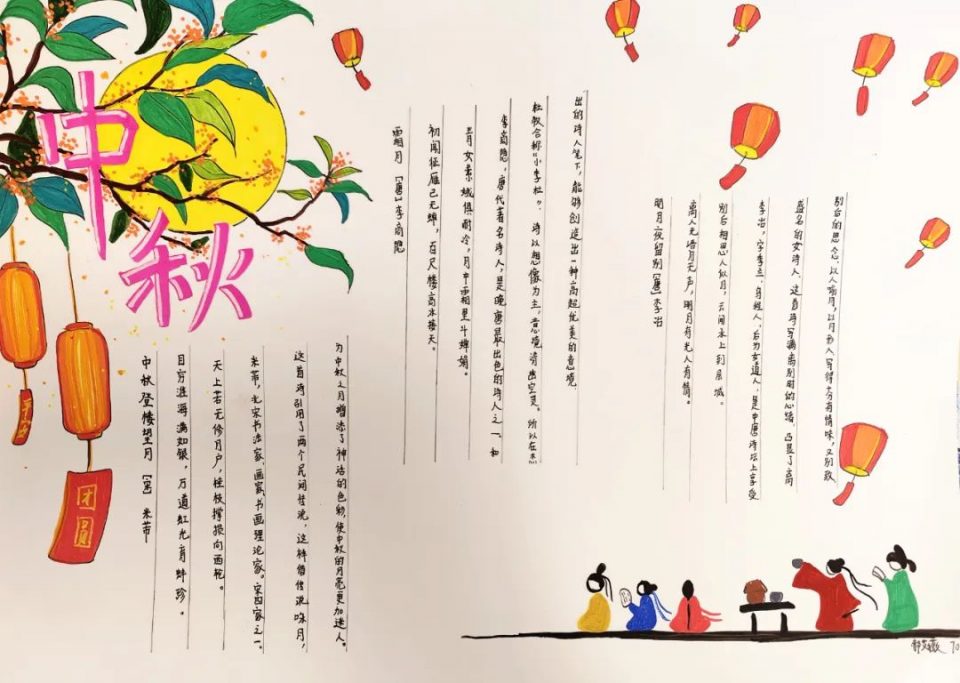 中秋
团圆
中秋登楼望月 [宋] 米芾
目穷淮海满如银，万道虹光育蚌珍。
天上若无修月户，桂枝撑损向西轮。
米芾，北宋书法家、画家书画理论家。宋四家之一。
这首诗引用了两个民间传说，这种借传说咏月，
为中秋之月增添了神话的色彩，使中秋的月亮更加迷人。
霜月 [唐] 李商隐
初闻征雁已无蝉，百尺楼高水接天。
青女素娥俱耐冷，月中霜里斗婵娟。
李商隐，唐代著名诗人，是晚唐最出色的诗人之一，和
杜牧合称“小李杜”，诗以想像为主，意境清幽空灵。所以在杰
出的诗人笔下，能够创造出一种高超优美的意境
明月夜留别 [唐] 李冶
离人无语月无声，明月有光人有情。
别后相思人似月，云间水上到层城。
李冶，字季兰，乌程人，后为女道人，是中唐诗坛上享受
盛名的女诗人，这首诗写满离别时的心绪，凸显了离
别后的思念，以人喻月，以月形人写得十分有情味，又别致